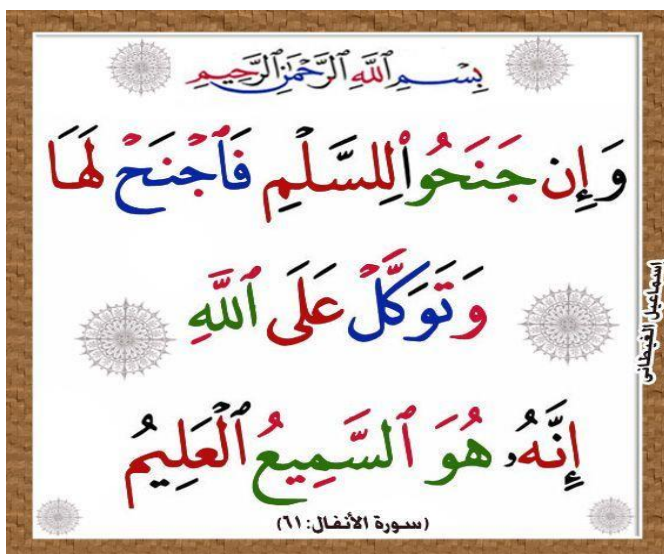 بِسْمِ ٱللَّهِ ٱلرَّحْمَٰنِ ٱلرَّحِيمِ
وَإِن جَنَحُوا۟ لِلسَّلْمِ فَٱجْنَحْ لَهَا
وَتَوَكَّلْ عَلَى ٱللَّهِ
إِنَّهُۥ هُوَ ٱلسَّمِيعُ ٱلْعَلِيمُ
(سورة الأنفال: ٦١)
اسماعيل الغيطانى